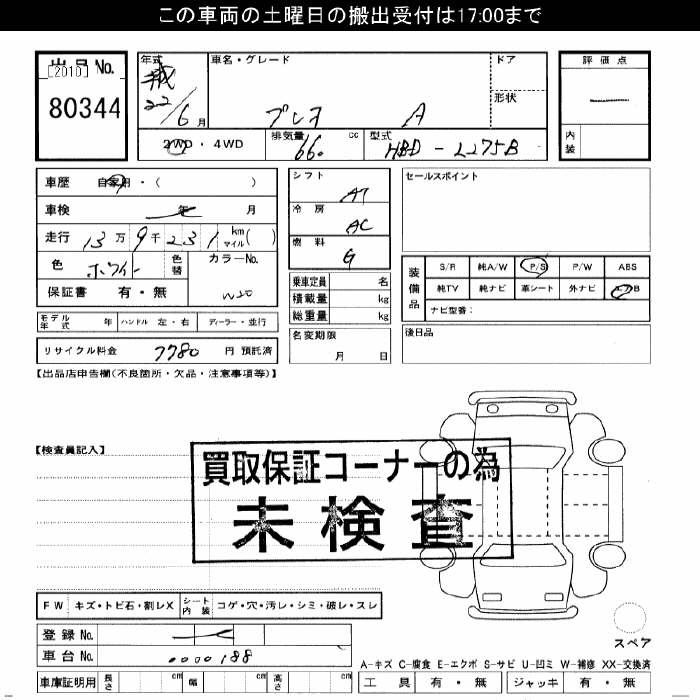 この車両の土曜日の搬出受付は17:00まで
出品No.
[2010]
80344
年式
22/6月
車名・グレード
プレオ A
ドア
形状
2WD・4WD
排気量 660 cc
型式 HBD-L275B
評価点
内装
車歴 自家用・( )
車検 年 月
走行 13万9千231 km マイル( )
色 ホワイト
色替
カラーNo. W20
保証書 有・無
シフト AT
冷房 AC
燃料 G
乗車定員 名
積載量 kg
総重量 kg
セールスポイント
装備品
S/R 純A/W P/S P/W ABS
純TV 純ナビ 革シート 外ナビ エアB
ナビ型牽：
モデル年式 年 ハンドル 左・右 ディーラー・並行
名変期限 月 日
後日品
リサイクル料金 7780 円 預託済
【出品店申告欄(不良箇所・欠品・注意事項等)】
【検査員記入】
買取保証コーナーの為
未検査
FW キズ・トビ石・割レX
シート内装 コゲ・穴・汚レ・シミ・破レ・スレ
登録No.
車台No. 0000188
車庫証明用 長さ cm 幅 cm 高さ cm
スペア
A-キズ C-腐食 E-エクボ S-サビ U-凹ミ W-補修 XX-交換済
工具 有・無 ジャッキ 有・無